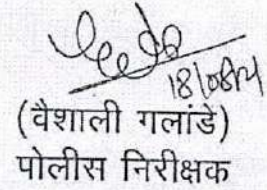 18/08/14
(वैशाली गलांडे)
पोलीस निरीक्षक